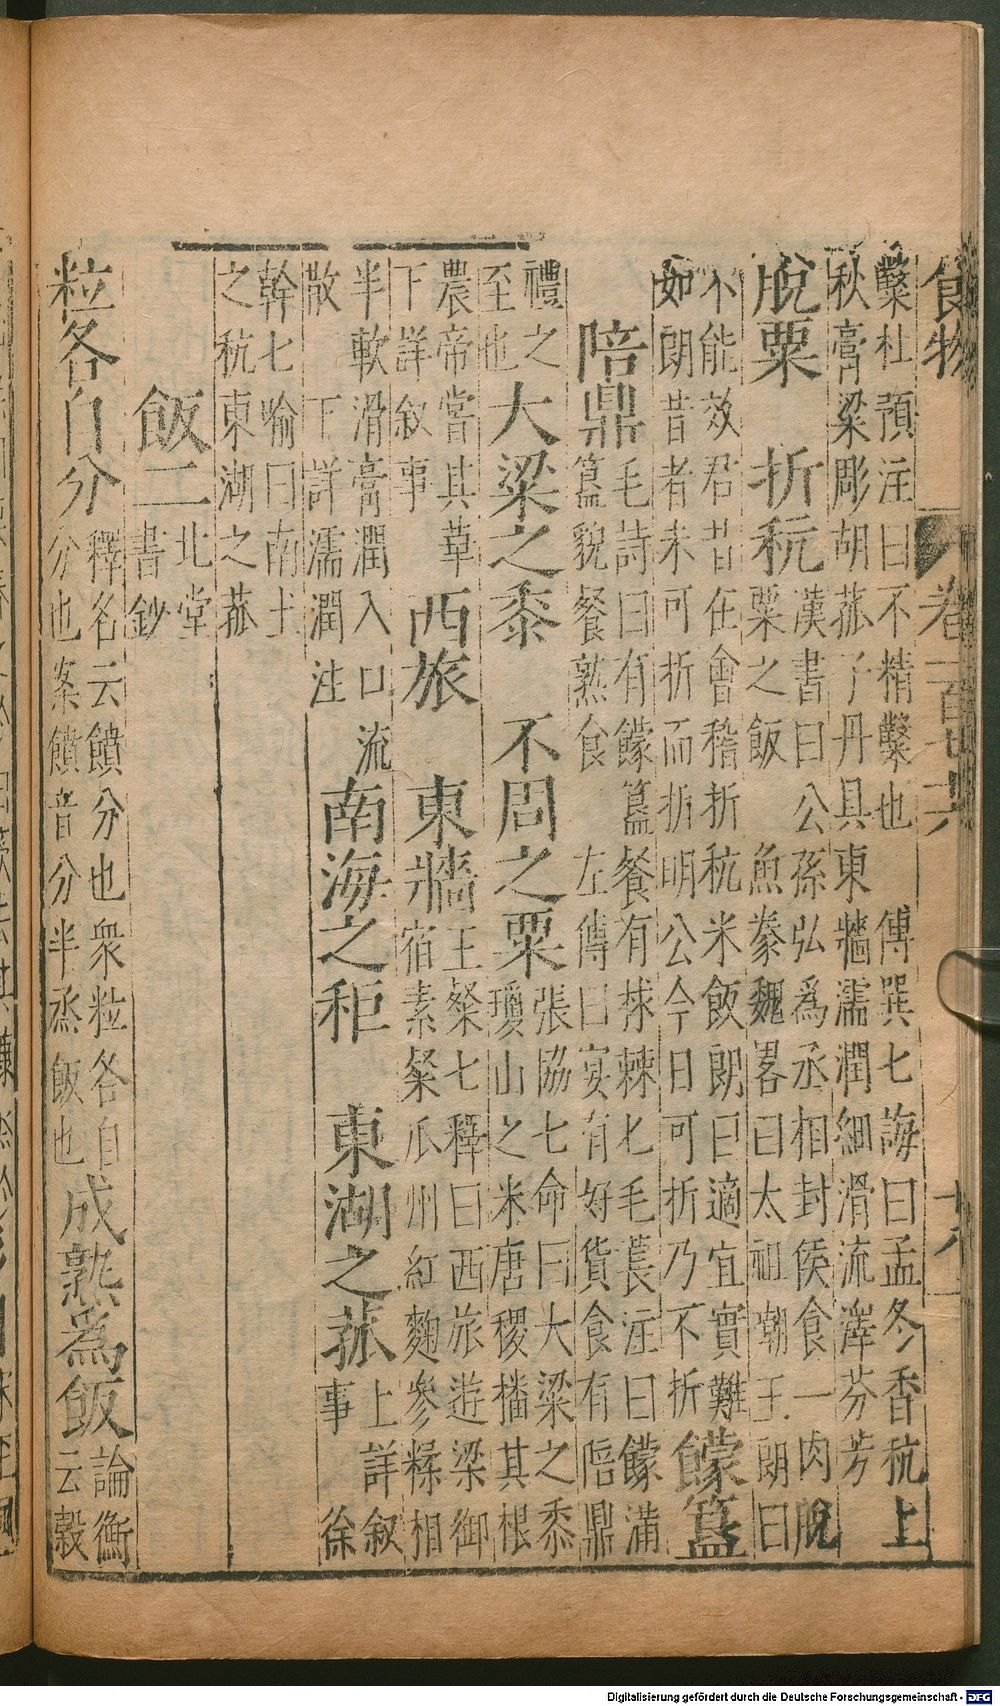 食物
糳杜預注曰不精糳也　傅巽七誨曰孟冬香秔上
秋膏粱彫胡菰子丹具東牆濡潤細滑流澤芬芳
脫粟　折秔　漢書曰公孫弘爲丞相封侯食一肉脫
粟之飯　魚豢魏畧曰太祖嘲王朗曰
不能效君昔在會稽折秔米飯朗曰適宜實難
如朗昔者未可折而折明公今日可折乃不折　饛簋
陪鼎　毛詩曰有饛簋餐有捄棘匕毛萇注曰饛滿
簋貌餐熟食　左傳曰宴有好貨食有陪鼎
禮之
至也　大梁之黍　不周之粟　張協七命曰大梁之黍
瓊山之米唐稷播其根
農帝嘗其華
下詳叙事　西旅　東牆　王粲七釋曰西旅遊梁御
宿素粲瓜州紅麴參糅相
半軟滑膏潤入口流
散　下詳濡潤注　南海之秬　東湖之菰　上詳叙
事　徐
幹七喻曰南土
之秔東湖之菰
飯二　北堂
書鈔
粒各自分　釋名云饙分也衆粒各自
分也案饙音分半烝飯也　成熟爲飯　論衡
云穀
Digitalisierung gefördert durch die Deutsche Forschungsgemeinschaft - DFG